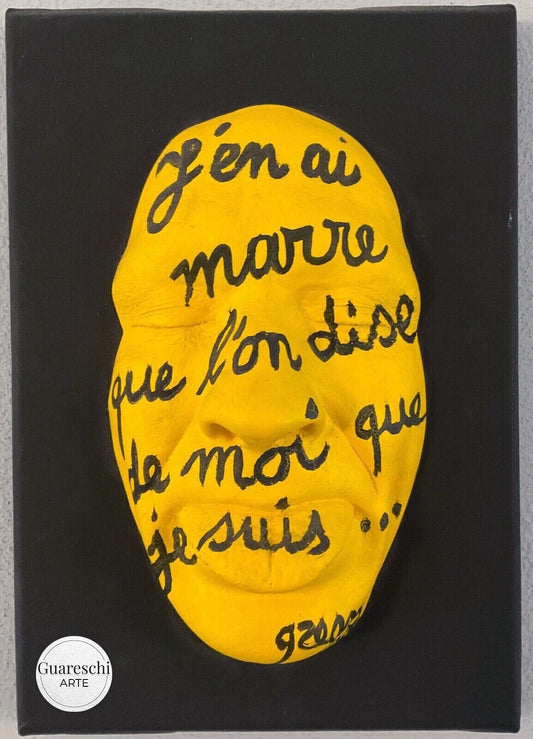 J'en ai
marre
que l'on dise
de moi que
je suis ...
Guareschi
ARTE